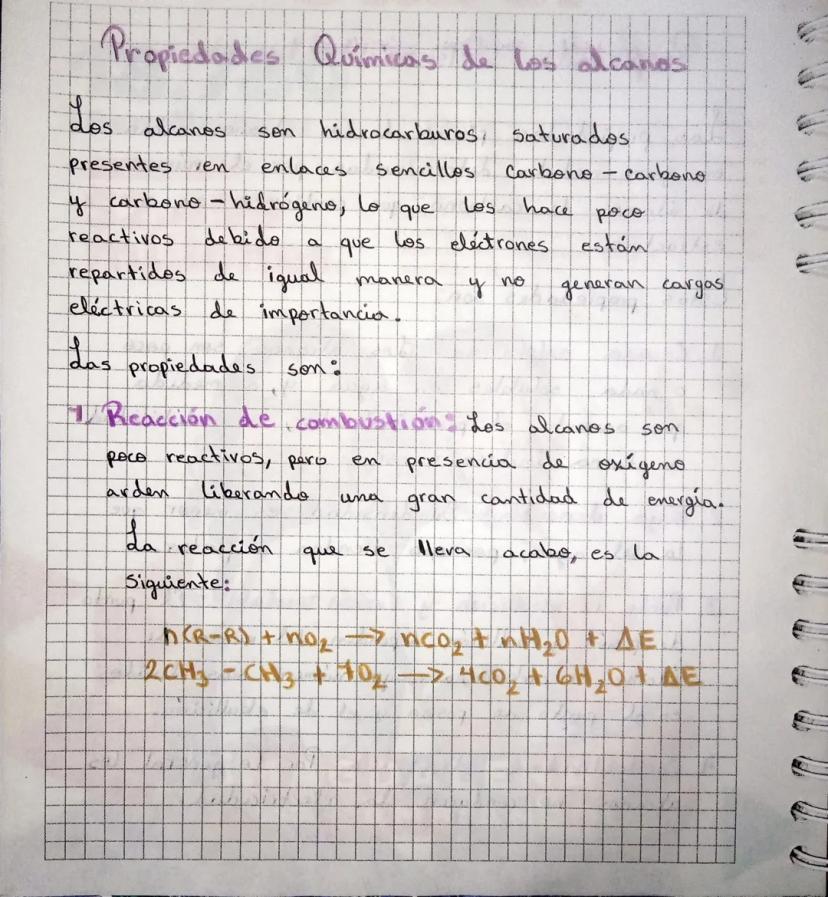 Propiedades Químicas de los alcanos
Los alcanos son hidrocarburos saturados
presentes en enlaces sencillos carbono - carbono
y carbono - hidrógeno, lo que los hace poco
reactivos debido a que los eléctrones están
repartidos de igual manera y no generan cargas
eléctricas de importancia.
Las propiedades son:
1. Reacción de combustión: Los alcanos son
poco reactivos, pero en presencia de oxígeno
arden liberando una gran cantidad de energía.
La reacción que se lleva acabo, es la
siguiente:
n(R-R) + nO₂ → nCO₂ + nH₂O + ΔE
2CH₃ - CH₃ + 7O₂ → 4CO₂ + 6H₂O + ΔE